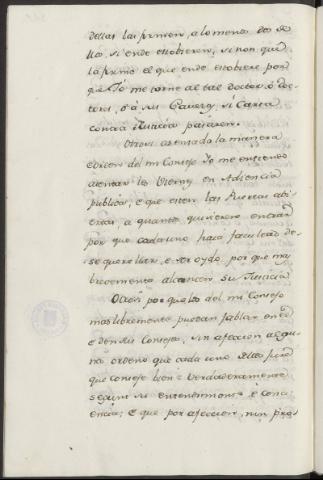 dellas las firmen, a lo menos dos de
llos, si ende estobieren, si non, que
la firme el que ende estobiere por
que Yó me torne al tal doctor, ó Doc
tores, ó á sus si Carta
contra Justicia pasaren.
Otrosi asentado la manera
é orden del mi Consejo Yo me entiendo
asentar los Viernes en Audiencia
publica, e que esten las Puertas abi
ertas, a quantos quisieren entrar
por que cada uno haia facultad de
se querellar, e ser oydo, por que mas
brevemente alcancen su Justicia
Otrosi por que los del mi Consejo
mas libremente puedan fablar en el
e den sus Consejos, sin afeccion algu
na ordeno que cada uno dellos jure
que conseje bien e verdaderamente
segunt su entendimiento e conci
encia; E que por afeccion, nin pro=